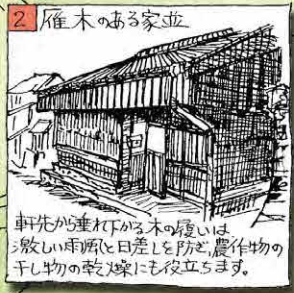 2 雁木のある家並
軒先から垂れ下がる木の覆いは
激しい雨風と日差しを防ぎ、農作物の
干し物の乾燥にも役立ちます。